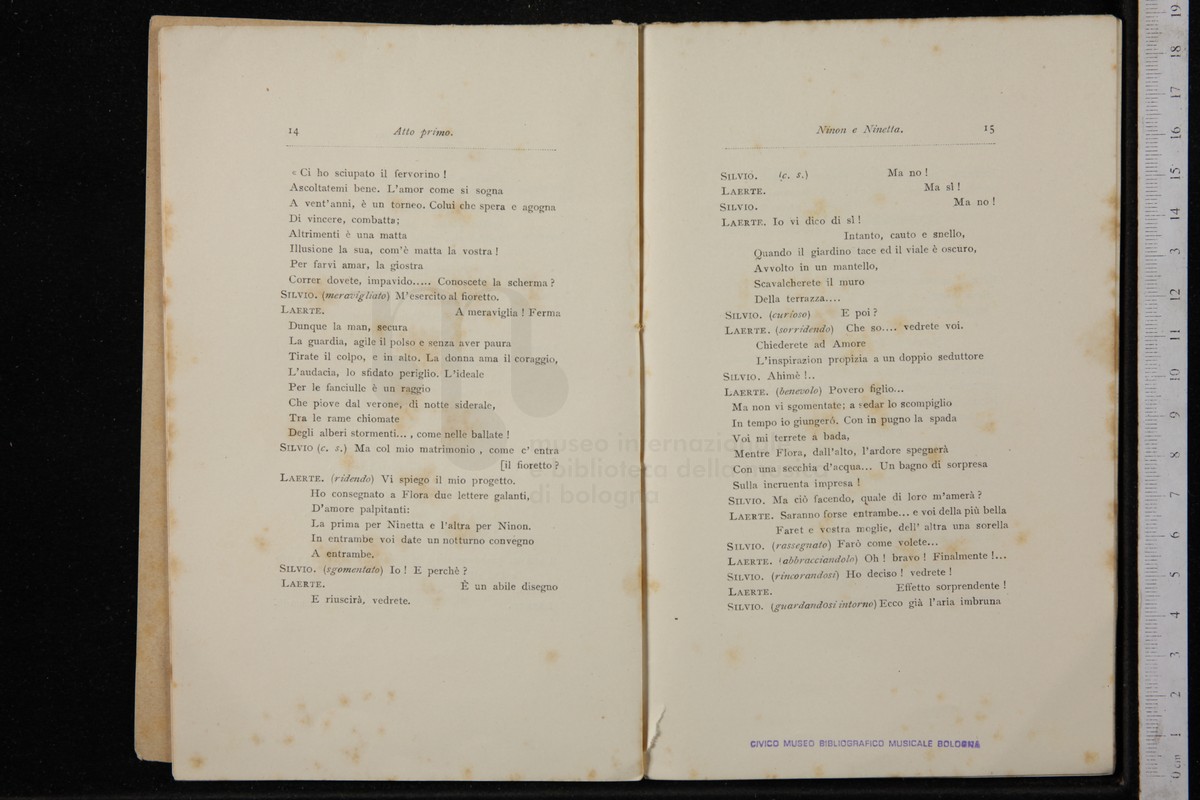 14 Atto primo.
« Ci ho sciupato il fervorino !
Ascoltatemi bene. L'amor come si sogna
A vent'anni, è un torneo. Colui che spera e agogna
Di vincere, combatta;
Altrimenti è una matta
Illusione la sua, com'è matta la vostra !
Per farvi amar, la giostra
Correr dovete, impavido..... Conoscete la scherma ?
SILVIO. (meravigliato) M'esercito al fioretto.
LAERTE. A meraviglia ! Ferma
Dunque la man, secura
La guardia, agile il polso e senza aver paura
Tirate il colpo, e in alto. La donna ama il coraggio,
L'audacia, lo sfidato periglio. L'ideale
Per le fanciulle è un raggio
Che piove dal verone, di notte siderale,
Tra le rame chiomate
Degli alberi stormenti... , come nelle ballate !
SILVIO (c. s.) Ma col mio matrimonio , come c' entra
[il fioretto ?
LAERTE. (ridendo) Vi spiego il mio progetto.
Ho consegnato a Flora due lettere galanti,
D'amore palpitanti:
La prima per Ninetta e l'altra per Ninon.
In entrambe voi date un notturno convegno
A entrambe.
SILVIO. (sgomentato) Io ! E perchè ?
LAERTE. È un abile disegno
E riuscirà, vedrete.
Ninon e Ninetta. 15
SILVIO. (c. s.) Ma no !
LAERTE. Ma sì !
SILVIO. Ma no !
LAERTE. Io vi dico di sì !
Intanto, cauto e snello,
Quando il giardino tace ed il viale è oscuro,
Avvolto in un mantello,
Scavalcherete il muro
Della terrazza....
SILVIO. (curioso) E poi ?
LAERTE. (sorridendo) Che so.... vedrete voi.
Chiederete ad Amore
L'inspirazion propizia a un doppio seduttore
SILVIO. Ahimè !..
LAERTE. (benevolo) Povero figlio...
Ma non vi sgomentate; a sedar lo scompiglio
In tempo io giungerò. Con in pugno la spada
Voi mi terrete a bada,
Mentre Flora, dall'alto, l'ardore spegnerà
Con una secchia d'acqua... Un bagno di sorpresa
Sulla incruenta impresa !
SILVIO. Ma ciò facendo, quale di loro m'amerà ?
LAERTE. Saranno forse entrambe... e voi della più bella
Faret e vostra moglie, dell' altra una sorella
SILVIO. (rassegnato) Farò come volete...
LAERTE. (abbracciandolo) Oh ! bravo ! Finalmente !...
SILVIO. (rincorandosi) Ho deciso ! vedrete !
LAERTE. Effetto sorprendente !
SILVIO. (guardandosi intorno) Ecco già l'aria imbruna
CIVICO MUSEO BIBLIOGRAFICO MUSICALE BOLOGNA
museo internazionale
e biblioteca della
di bologna
0 cm 1 2 3 4 5 6 7 8 9 10 11 12 13 14 15 16 17 18 19